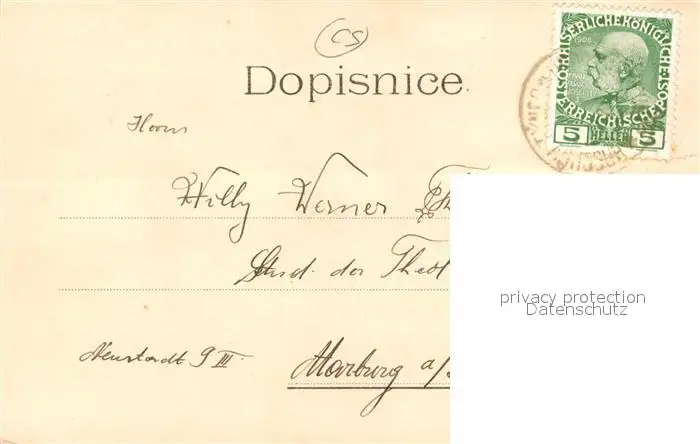 CS
Dopisnice
KAISERLICHE KÖNIGLICHE ÖSTERREICHISCHE POST
1908
5 HELLER 5
Herrn
Willy Werner
Stud. der Theol
Neustadt 9 III
Marburg a/
privacy protection
Datenschutz